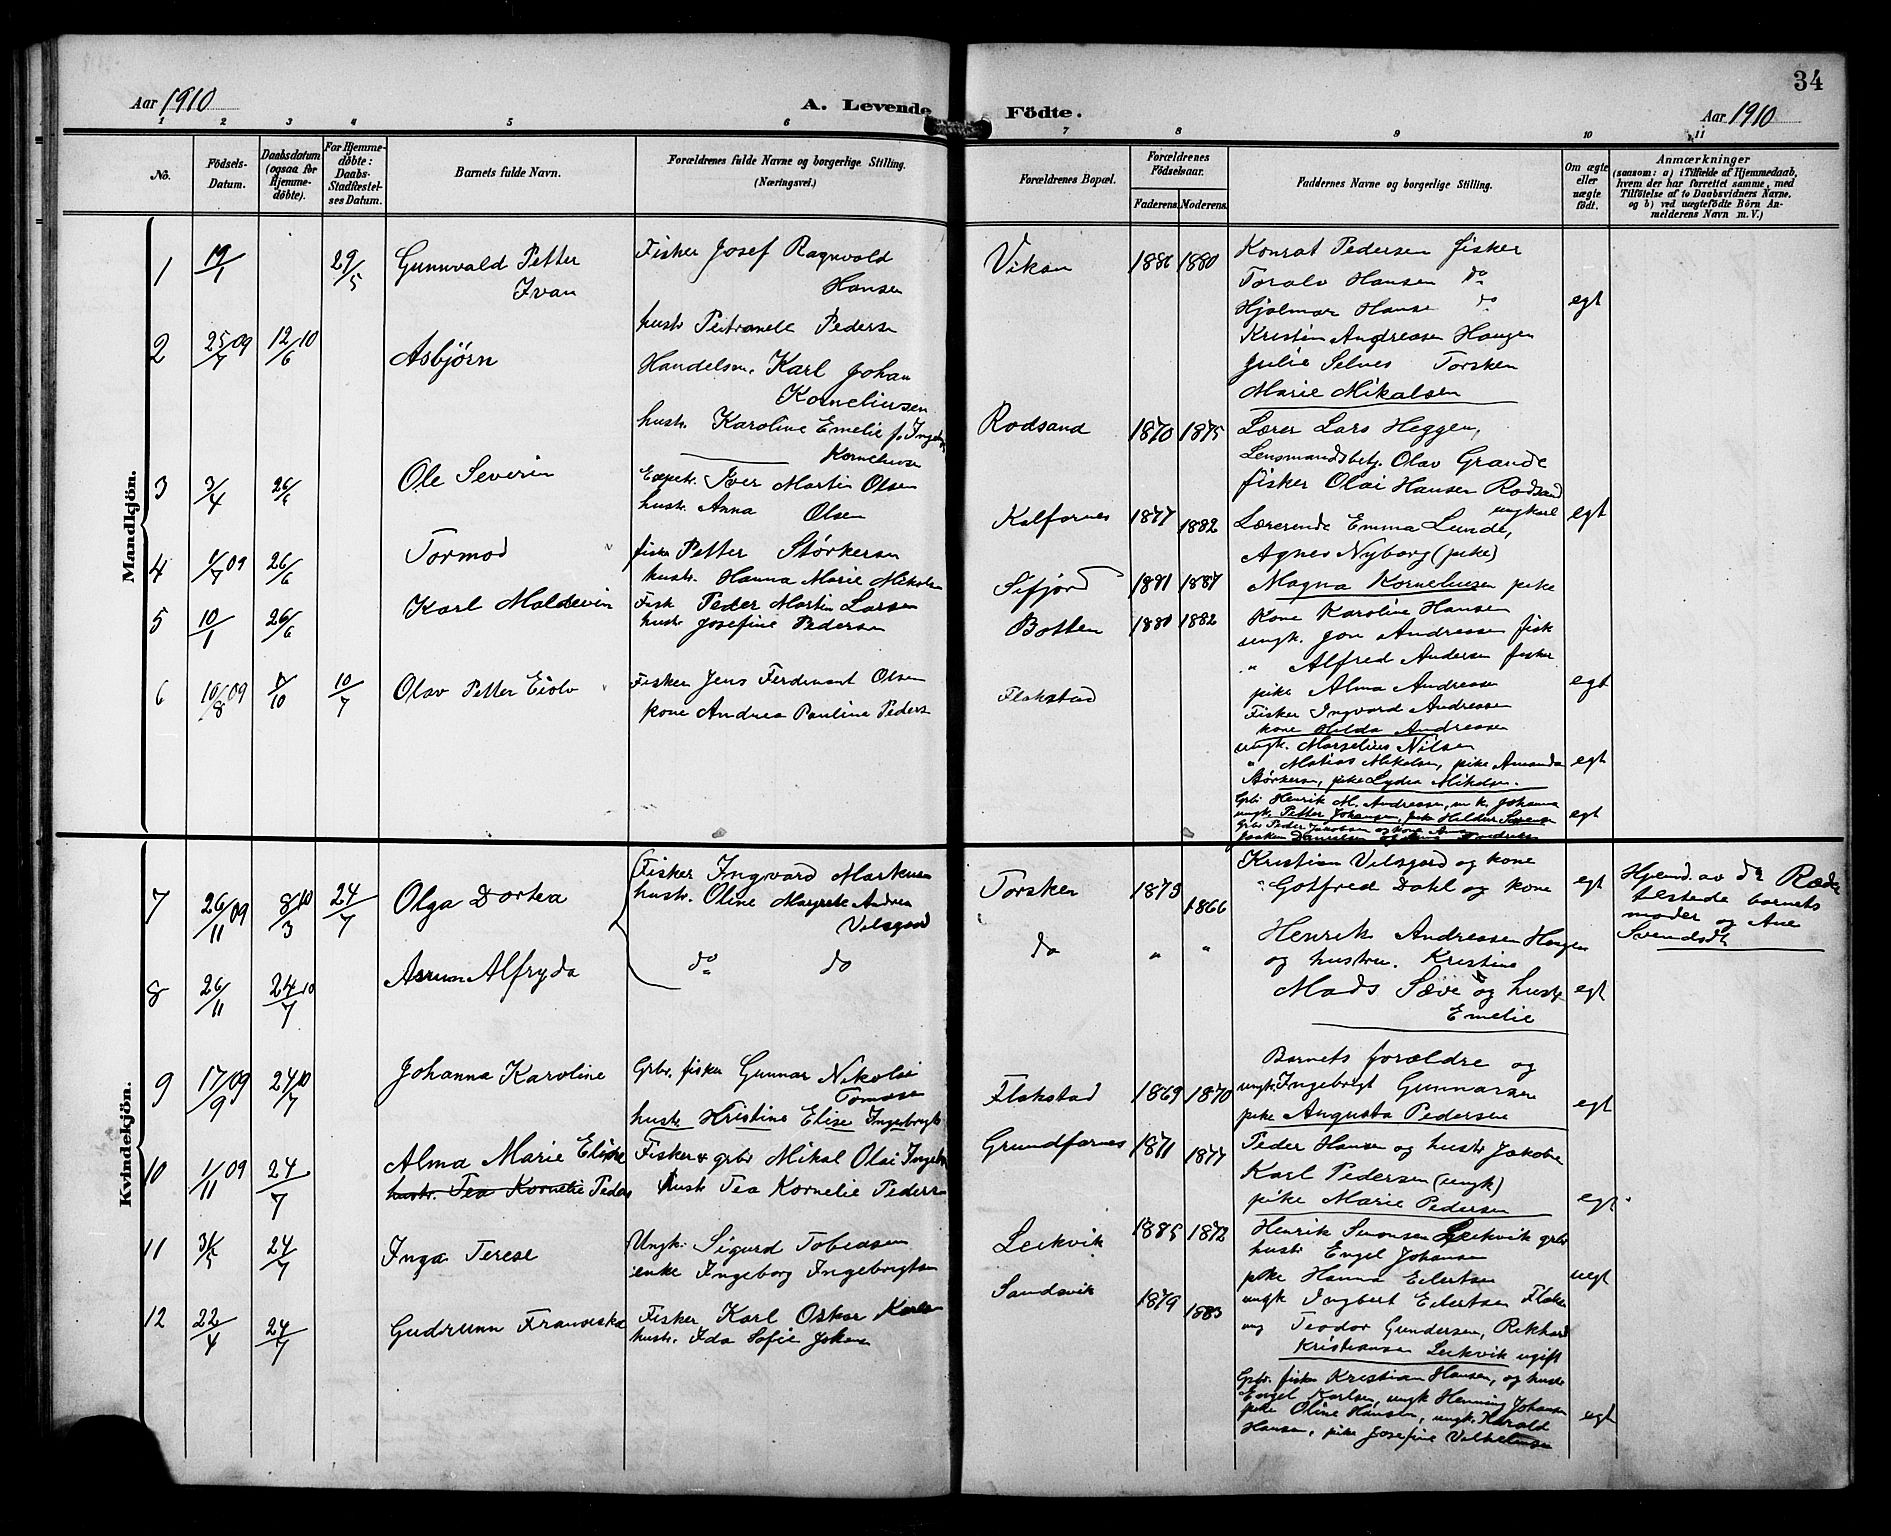 Aar 1910
A. Levende Födte.
Aar 1910
34
1 2 3 4 5 6 7 8 9 10 11
No.
Födsels-
Datum.
Daabsdatum
(ogsaa for
Hjemme-
døbte).
For Hjemme-
døbte:
Daabs-
Stadfæstel-
ses Datum.
Barnets fulde Navn.
Forældrenes fulde Navne og borgerlige Stilling.
(Næringsvei.)
Forældrenes Bopæl.
Forældrenes
Födselsaar.
Faderens. Moderens.
Faddernes Navne og borgerlige Stilling.
Om ægte
eller
uægte
födt.
Anmærkninger
(saasom: a) i Tilfælde af Hjemmedaab,
hvem der har forrettet samme, med
Tilføielse af to Daabsvidners Navne.
og b) ved uægtefødte Börn An-
melderens Navn m. V.)
Mandkjön.
1 19/1 29/5 Gunnvald Petter
Ivan
Fisker Josef Ragnvold
Hansen
hustr Petronelle Pederse
Vikan 1880
Konrat Pedersen fisker
Toralv Hansen do
Hjalmar Hanse do
egt
Kristin Andreasen Haugen
Julie Selnes Torsken
Marie Mikalsen
2 25/7 09 12/6 10 Asbjørn
Handelsm. Karl Johan
Korneliusen
hustr. Karoline Emelie f. Ingebr
Korneliuse
Rodsand 1870 1875
Lærer Lars Heggen,
Lensmandsbetj. Olav Grande
fisker Olai Hansen Rodsand
ungkarl
Lærerinde Emma Lunde,
egt
Agnes Nyborg (pike)
Magna Korneliusen pike
3 3/4 26/6 Ole Severin
Expetr. Iver Martin Olsen
hustr. Anna Olsen
Kalfarnes 1877 1882
Kone Karoline Hansen
ungk. Jon Andreasen fisk
" Alfred Andersen fisker
pike Alma Andreasen
egt
Fisker Ingvard Andreasen
kone Hilda Andreasen
4 1/7 09 26/6 Tormod
fisker Petter Størkersen
hustr. Hanna Marie Mikalsen
Sifjord 1881 1887
ungk. Marselius Nilsen
" Matias Mikalsen, pike Amanda
Størkersen, pike Lydia Mikalsen.
egt
5 10/1 26/6 Karl Maldevin
Fisk Peder Martin Larsen
hustr Josefine Pedersen
Botten 1880 1882
Gbr Henrik M. Andreasen, m. k. Johanna
ungk. Petter Johansen, pike
egt
6 16/8 09 10/7 Olav Petter Eiolv
Fisker Jens Ferdinant Olsen
kone Andrea Pauline Peders
Flakstad
Gbr Peder Jakobsen og kone
Kvindekjön.
7 26/11 09 8/3 10 24/7 Olga Dortea
Fisker Ingvard Markusen
hustr. Oline Margrete Andrea
Vilsgaard
Torsken 1873 1866
Kristian Vilsgard og kone
" Gotfred Dahl og kone
egt
Hjemd. av
tilstede barnets
moder og Ane
Svendsdt
8 26/11 24/7 10 Asrun Alfryda
do do
do " "
Henrik Andreasen Haugen
og hustru. Kristine
Mads Sæve og hustr
Emelie
egt
9 17/9 09 24/7 10 Johanna Karoline
Grbr. fisker Gunnar Nikolai
Tomasen
hustr Kristine Elise Ingebrigts
Flakstad 1869 1870
Barnets forældre og
ungk. Ingebrigt Gunnarsen
pike Augusta Pedersen
egt
10 1/11 09 24/7 Alma Marie Elisbe
hustr. Tea Kornelie Peders
Fisker grbr Mikal Olai Ingebr
hustr Tea Kornelie Pederse
Grundfarnes 1871 1877
Peder Hansen og hustr Jakobe
Karl Pedersen (ungk)
pike Marie Pedersen
egt
11 24/7 Inga Terese
Ungk. Sigurd Tobiasen
enke Ingeborg Ingebrigtsen
Leikvik 1885 1872
Henrik Simonsen Leikvik grbr
hustr Engel Johansen
pike Hanna Eilertsen
uegt
ungk Ingbert Eilertsen
ung Teodor Gundersen, Rikhard
Kristiansen Leikvik ugift
12 22/4 24/7 Gudrunn Franciska
Fisker Karl Oskar Karlsen
hustr. Ida Sofie Johans
Sandsvik 1879 1883
Grbr. fisker Kristian Hansen, og hustr
Engel Karlsen, ungk Henning Johansen
pike Oline Hansen, ungk. Harald
Hansen, pike Josefine Vilhelmsen
egt